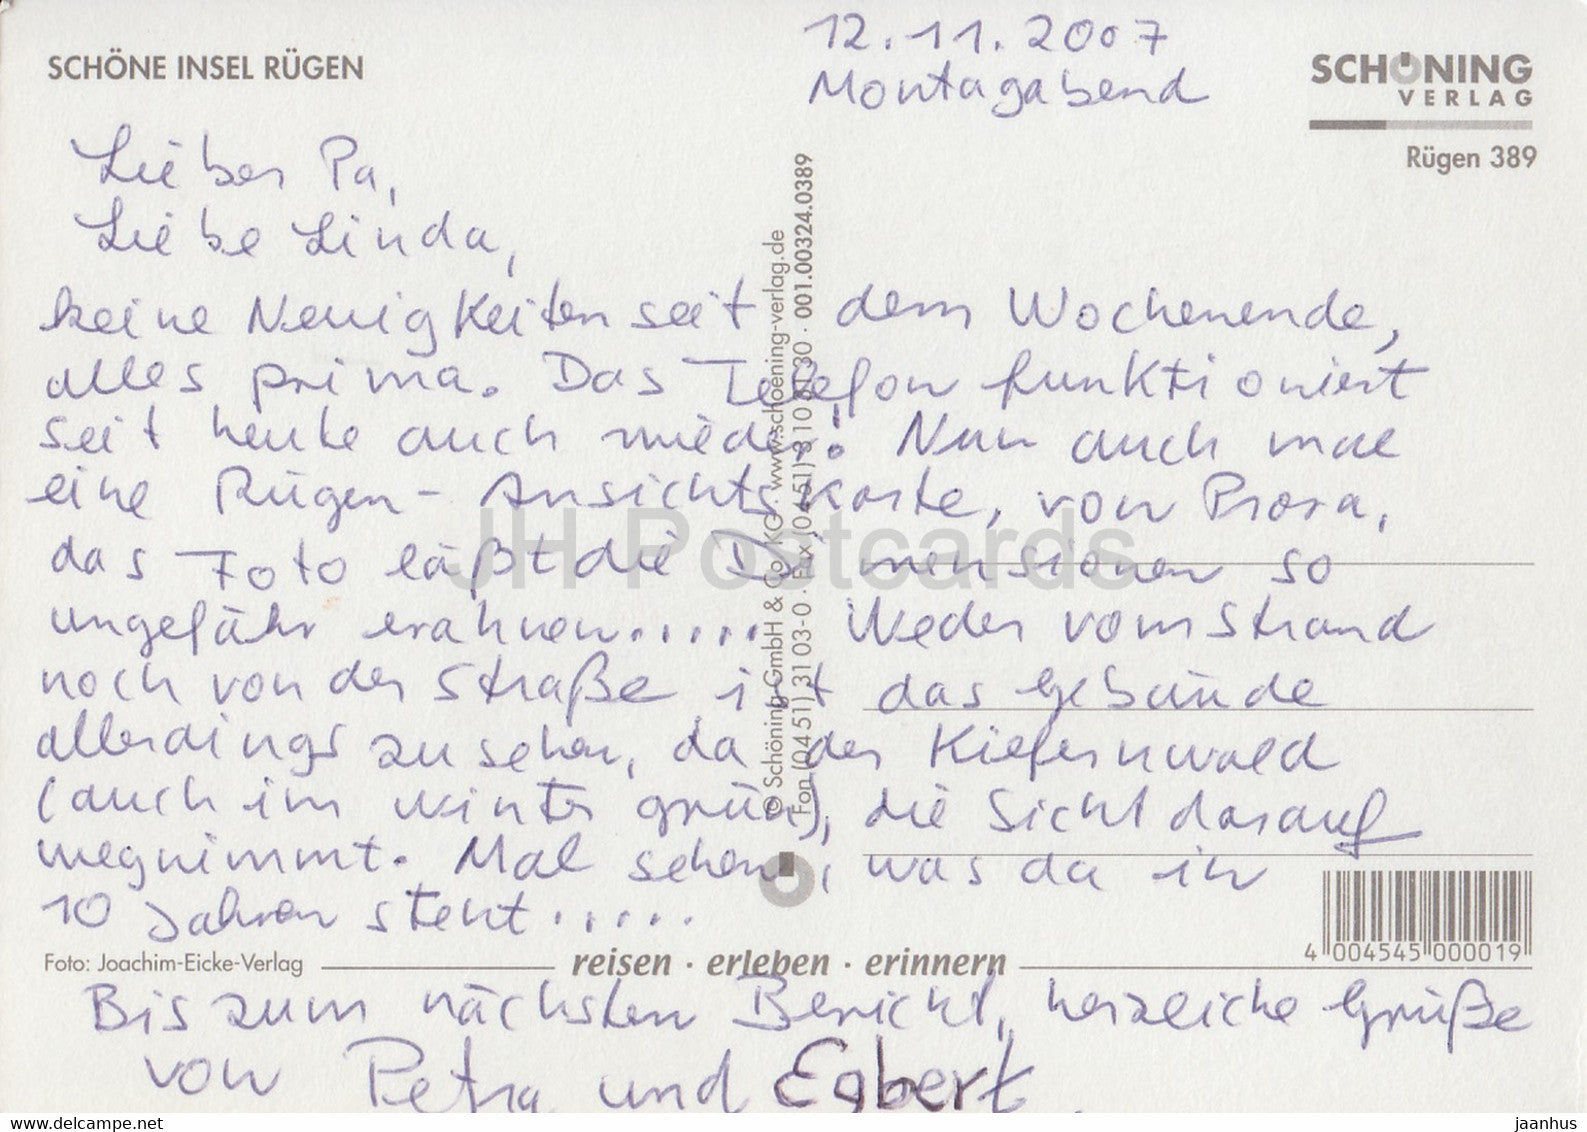 12.11.2007
Montagabend
SCHÖNE INSEL RÜGEN
SCHÖNING
VERLAG
Rügen 389
Lieber Pa,
Liebe Linda,
keine Neuigkeiten seit dem Wochenende,
alles prima. Das Telefon funktioniert
seit heute auch wieder! Nun auch mal
eine Rügen-Ansichtskarte, von Prora,
das Foto läßt die Dimensionen so
ungefähr erahnen..... Weder vom Strand
noch von der Straße ist das Gebäude
allerdings zu sehen, da der Kiefernwald
(auch im Winter grün), die Sicht darauf
wegnimmt. Mal sehen, was da in
10 Jahren steht.....
Foto: Joachim-Eicke-Verlag
reisen · erleben · erinnern
Bis zum nächsten Bericht, herzliche Grüße
von Petra und Egbert.
© Schöning GmbH & Co. KG · www.schoening-verlag.de
Fon (04 51) 3103-0 · Fax (04 51) · 001.00324.0389
4 004545 000019
JH Postcards
www.delcampe.net
jaanhus